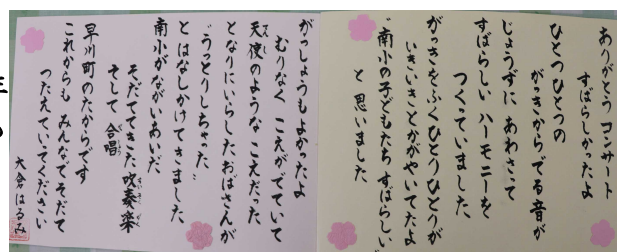 ありがとう コンサート
すばらしかったよ
ひとつひとつの
がっきからでる音が
じょうずに あわさって
すばらしい ハーモニーを
つくっていました
がっきをふくひとりひとりが
いきいきとかがやいてたよ
"南小の子どもたち すばらしい"
と思いました
がっしょうもよかったよ
むりなく こえがでていて
天使のような こえだった
となりにいらしたおばさんが
"うっとりしちゃった"
とはなしかけてきました
南小がながいあいだ
そだててきた 吹奏楽
そして 合唱
早川町のたからです
これからも みんなでそだて
つたえていってください
大倉はるみ